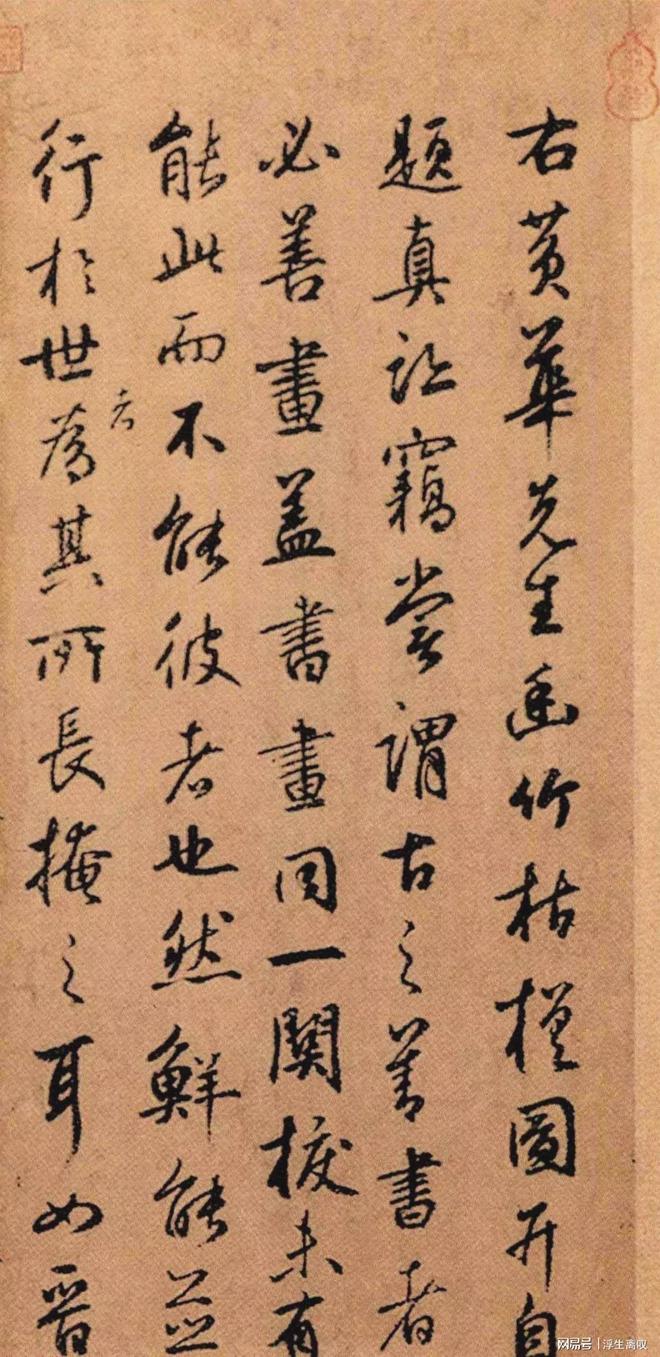 右黄華先生幽竹枯槎圖并自
題真訖竊嘗謂古之善書者
必善畫蓋書畫同一關捩未有
能此而不能彼者也然鮮能並
行於世者為其所長掩之耳如晋
网易号 | 浮生离叹